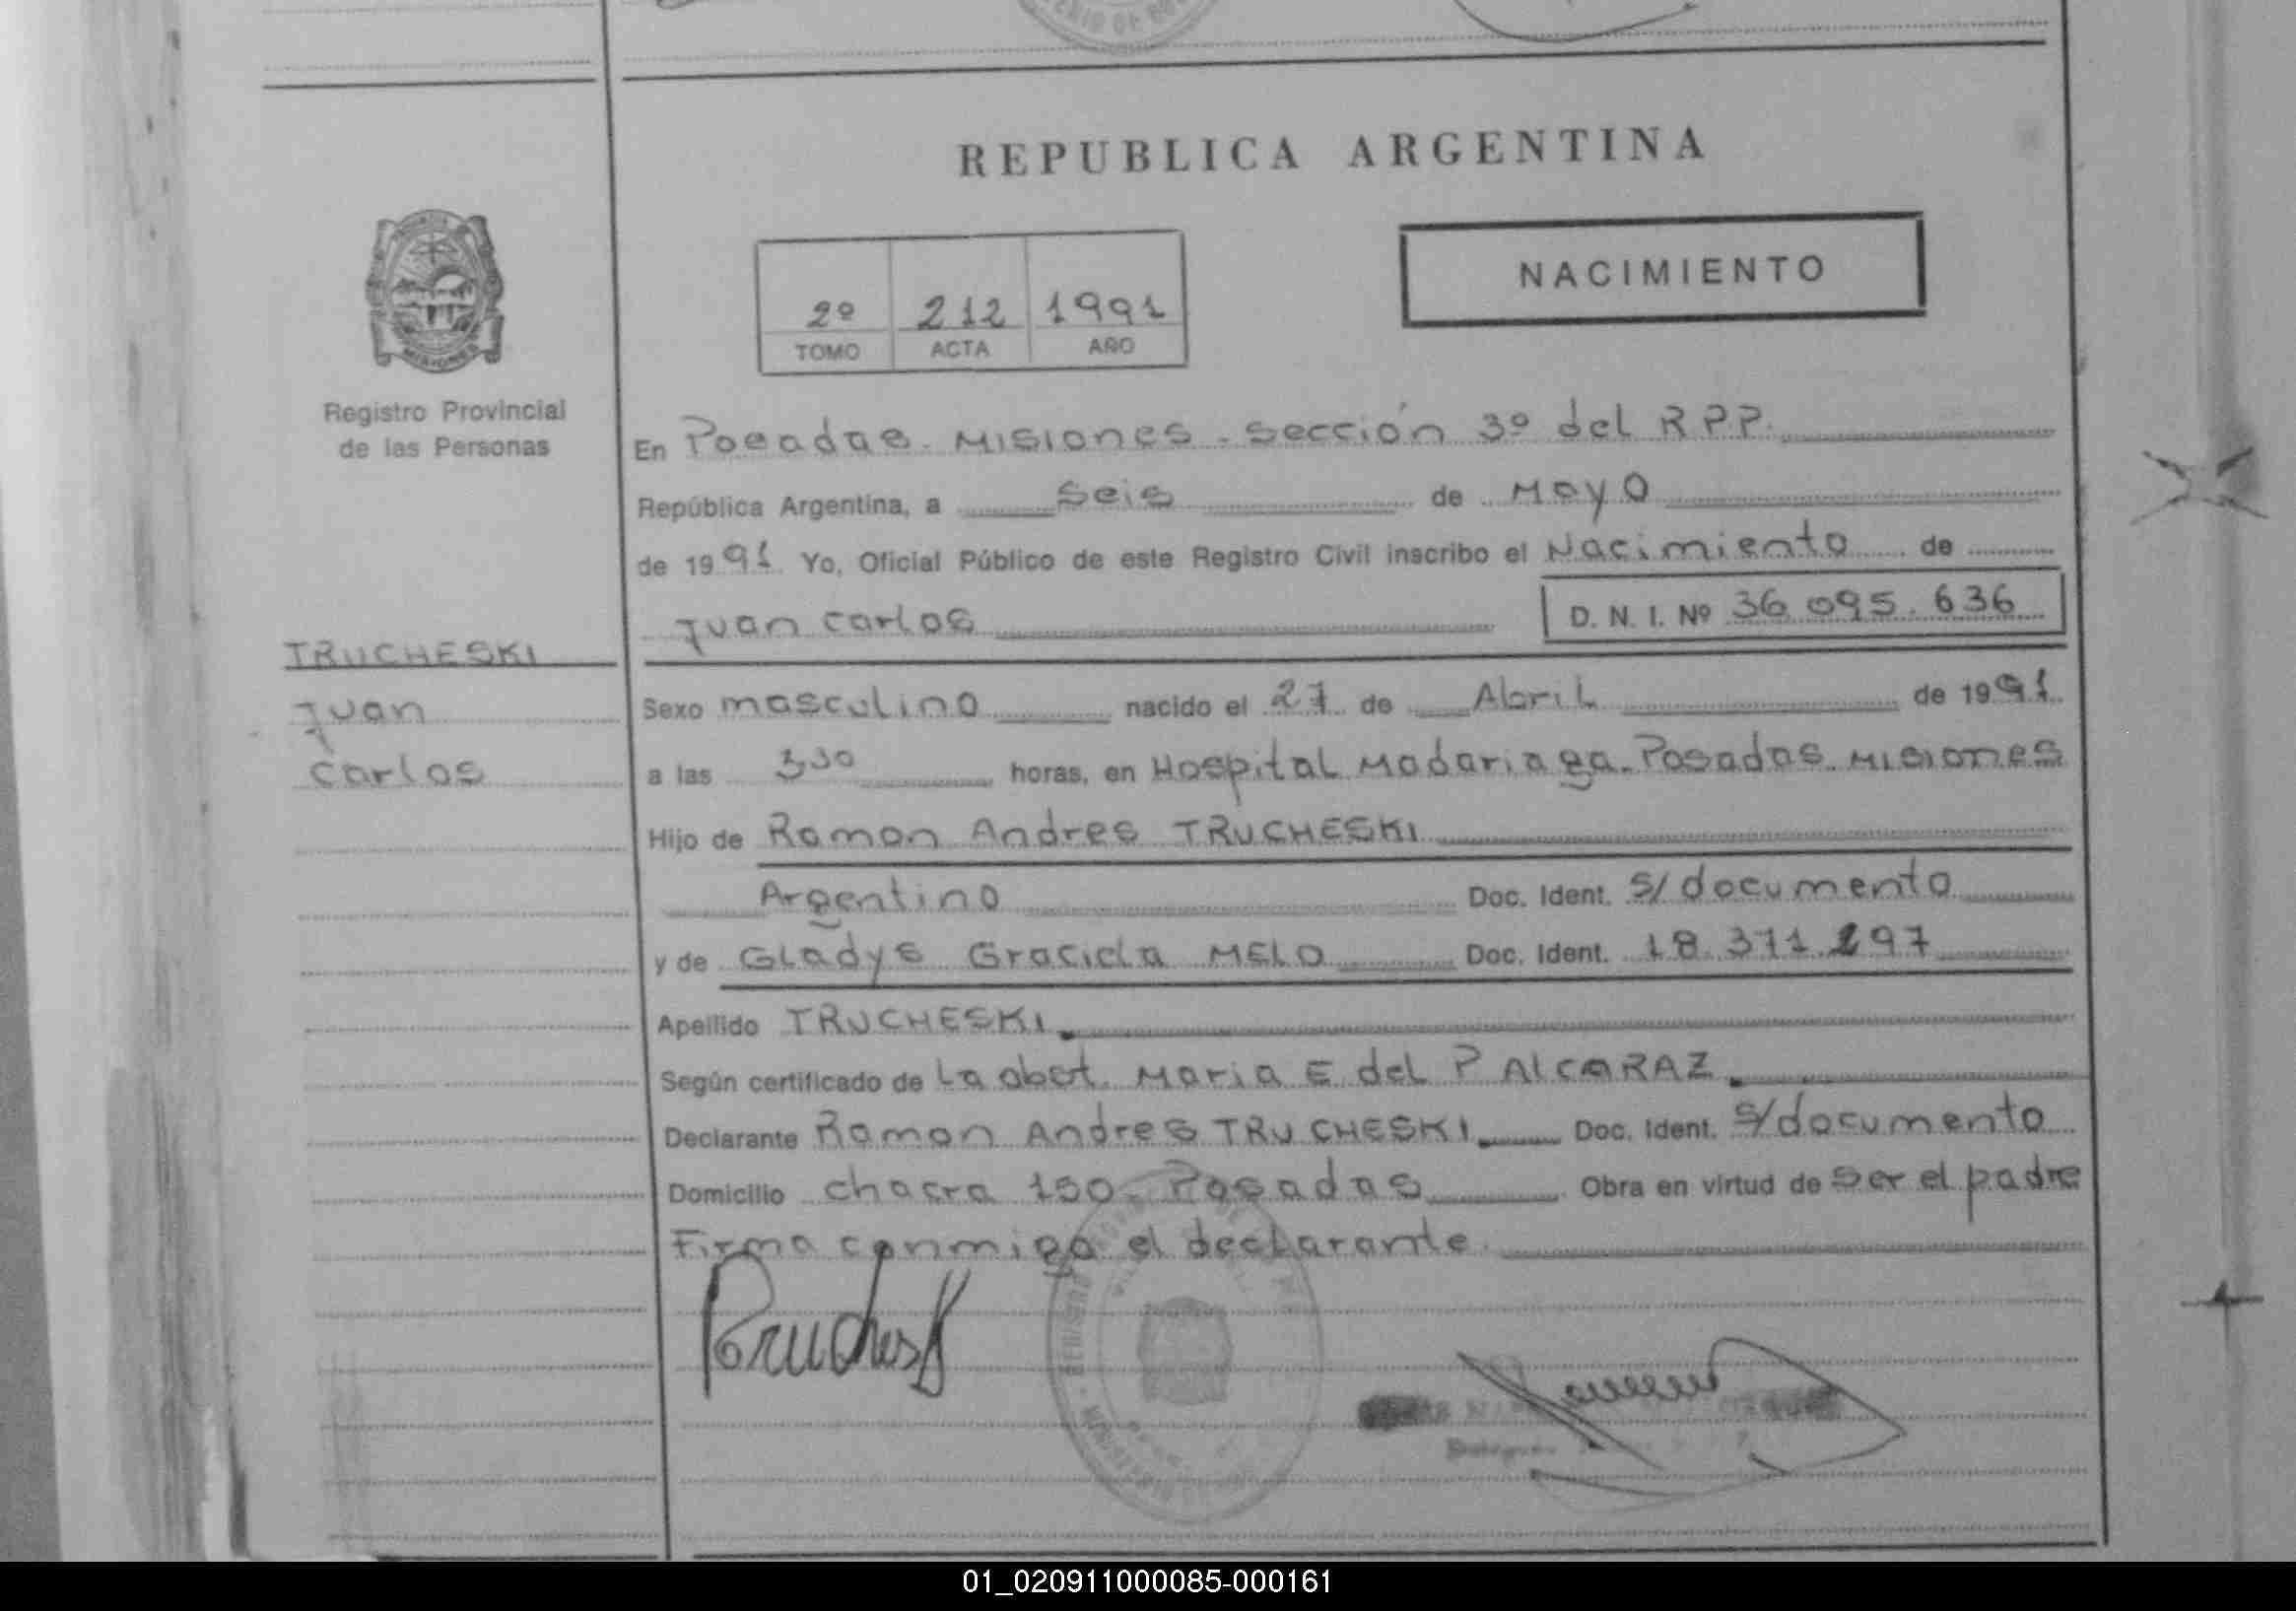 REPUBLICA ARGENTINA
NACIMIENTO
2º 212 1991
TOMO ACTA AÑO
MISIONES
Registro Provincial
de las Personas
En Posadas. Misiones. Sección 3º del R P P.
República Argentina, a seis de Mayo
de 1991 Yo, Oficial Público de este Registro Civil inscribo el Nacimiento de
Juan Carlos D. N. I. Nº 36.095.636
TRUCHESKI
Juan
Carlos
Sexo masculino nacido el 27 de Abril de 1991
a las 3:30 horas, en Hospital Madariaga. Posadas. Misiones
Hijo de Ramon Andres TRUCHESKI
Argentino Doc. Ident. s/documento
y de Gladys Graciela MELO Doc. Ident. 18.371.297
Apellido TRUCHESKI.
Según certificado de La obst. Maria E del P ALCARAZ.
Declarante Ramon Andres TRUCHESKI. Doc. Ident. s/documento
Domicilio chacra 150. Posadas Obra en virtud de ser el padre
Firma conmigo el declarante.
01_020911000085-000161